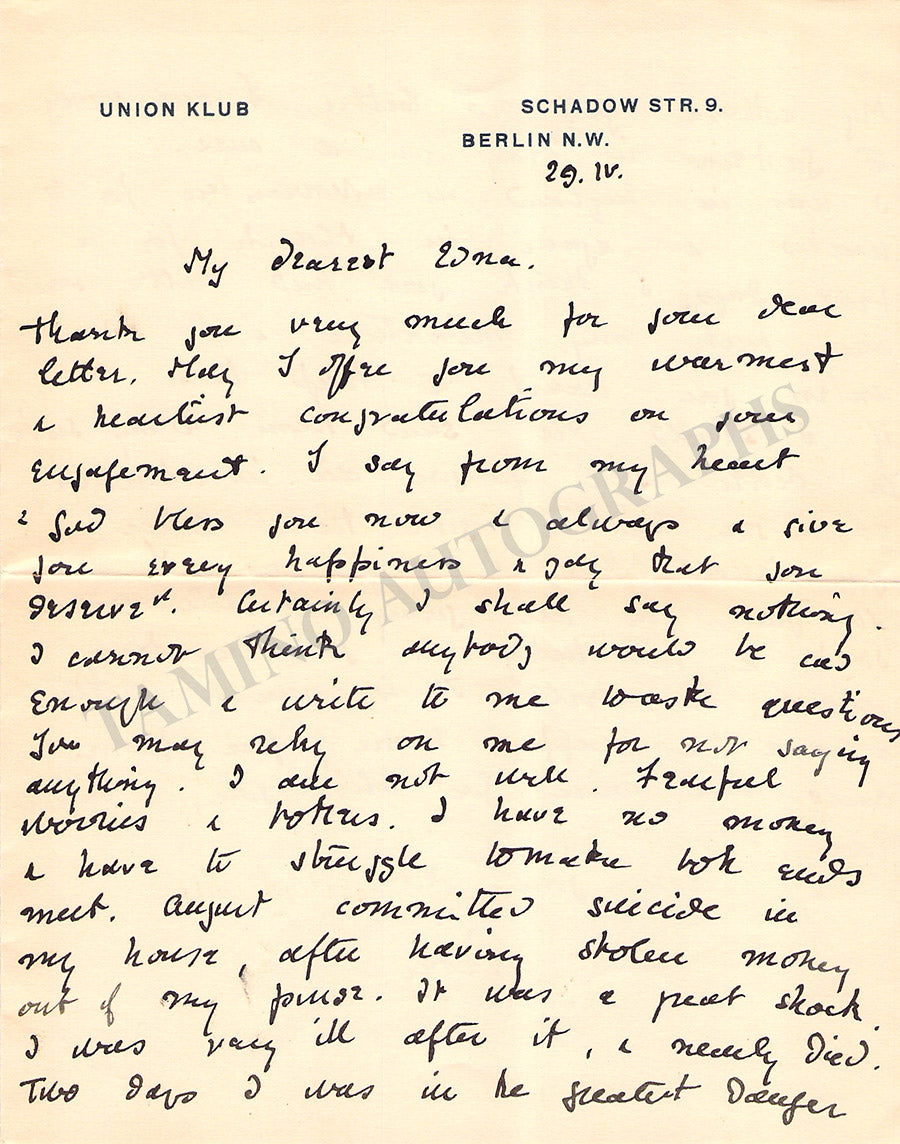 UNION KLUB
SCHADOW STR. 9.
BERLIN N.W.
29. IV.
My dearest Edna.
thank you very much for your dear
letter. May I offer you my warmest
& heartiest congratulations on your
engagement. I say from my heart
"God bless you now & always & give
you every happiness & joy that you
deserve". Certainly I shall say nothing.
I cannot think anybody would be cad
enough & write to me to ask questions
You may rely on me for not saying
anything. I am not well. Fearful
worries & bothers. I have no money
& have to struggle to make both ends
meet. August committed suicide in
my house, after having stolen money
out of my purse. It was a great shock.
I was very ill after it, & nearly died.
Two days I was in the greatest danger
TAMINO AUTOGRAPHS